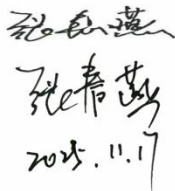 张春燕
张春燕
2025.11.17